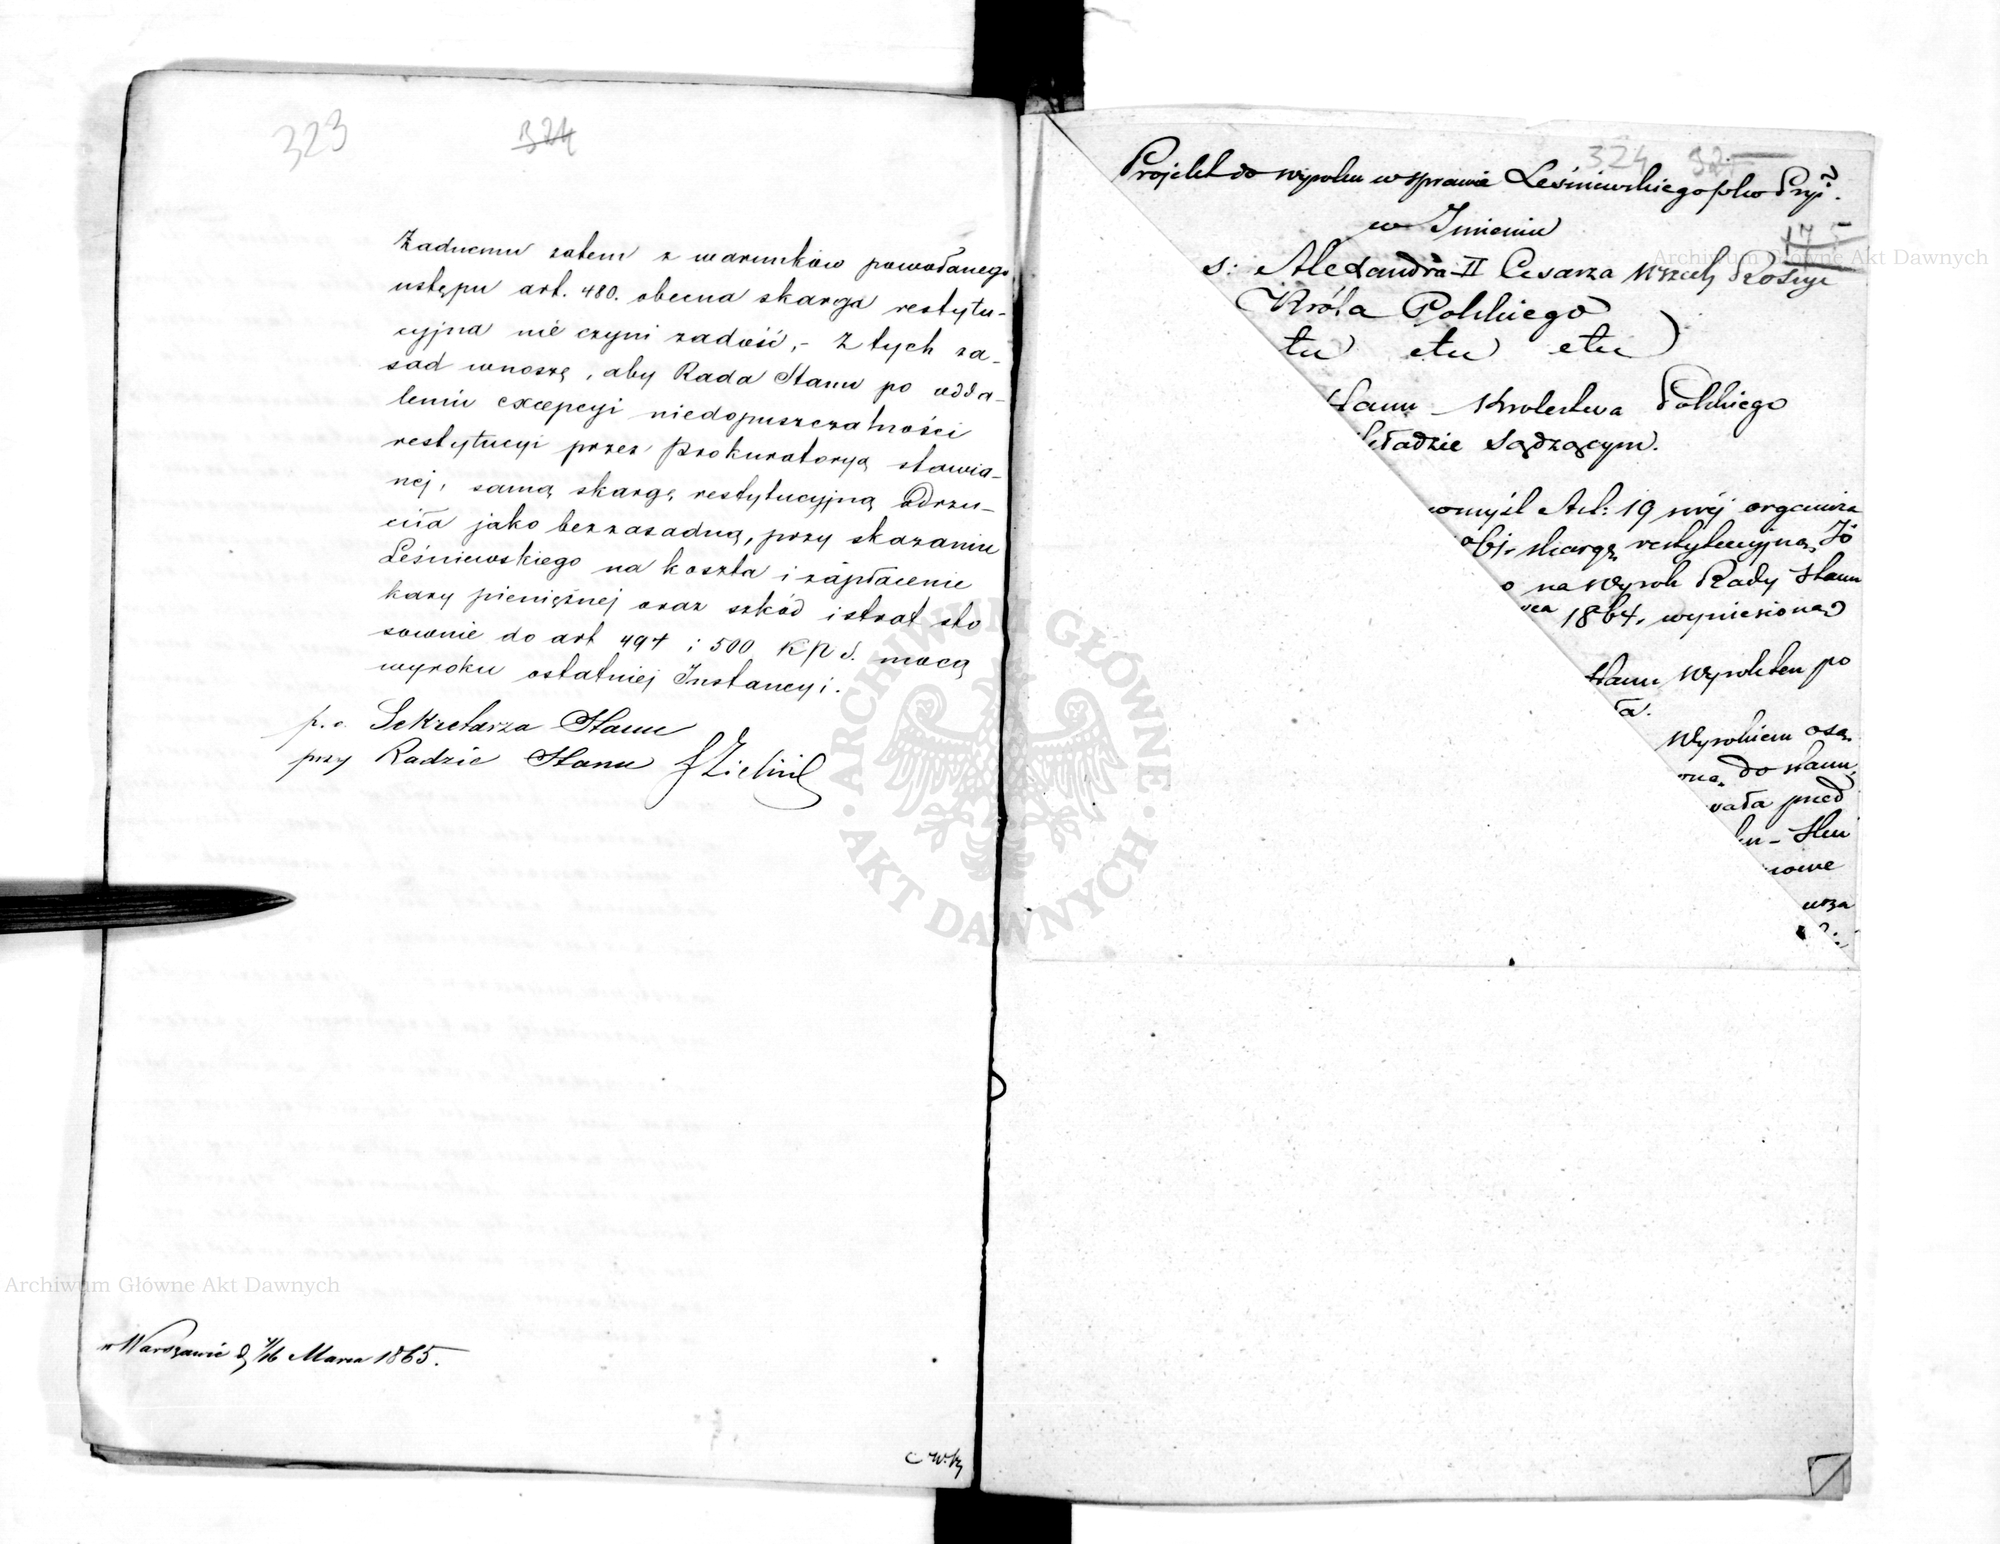 323
324
Żadnemu zatem z warunków powołanego
ustępu art. 480. obecna skarga restytu-
cyjna nie czyni zadość,- Z tych za-
sad wnoszę, aby Rada Stanu po odda-
leniu excepcyi niedopuszczalności
restytucyi przez Prokuratoryą stawia-
nej, samą skargę restytucyjną odrzu-
ciła jako bezzasadną, przy skazaniu
Leśniewskiego na koszta i zapłacenie
kary pieniężnej oraz szkód i strat sto
sownie do art 494 i 500 KPS. mocą
wyroku ostatniej Instancyi.
p. o. Sekretarza Stanu
przy Radzie Stanu
w Warszawie d. 4/16 Marca 1865.
324
Projekt do wyroku w sprawie Leśniewskiego
w Imieniu
s: Alexandra II Cesarza Wszech Rossyi
Króla Polskiego
etu etu
Stanu Królestwa Polskiego
kładzie Sądzącym.
w myśl Art: 19 swéj organiza
skargę restytucyjną
o na wyrok Rady Stanu
1864, wyniesioną
Stanu Wyrok ten po
ła.
Wyrokiem osą
do stanu,
wała przed
nowe
Archiwum Główne Akt Dawnych
Archiwum Główne Akt Dawnych
ARCHIWUM GŁÓWNE
AKT DAWNYCH